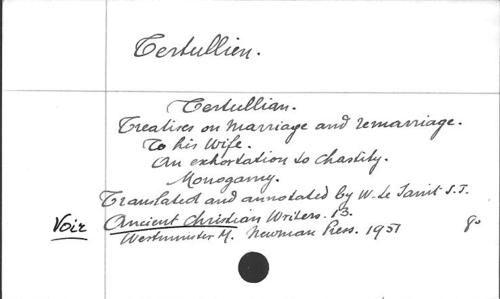 Tertullien.
Tertullian.
Treatises on marriage and remarriage.
To his Wife.
An exhortation to chastity.
Monogamy.
Translated and annotated by W. Le Saint S.J.
Voir Ancient Christian Writers. 13.
Westminster M. Newman Press. 1951 8o